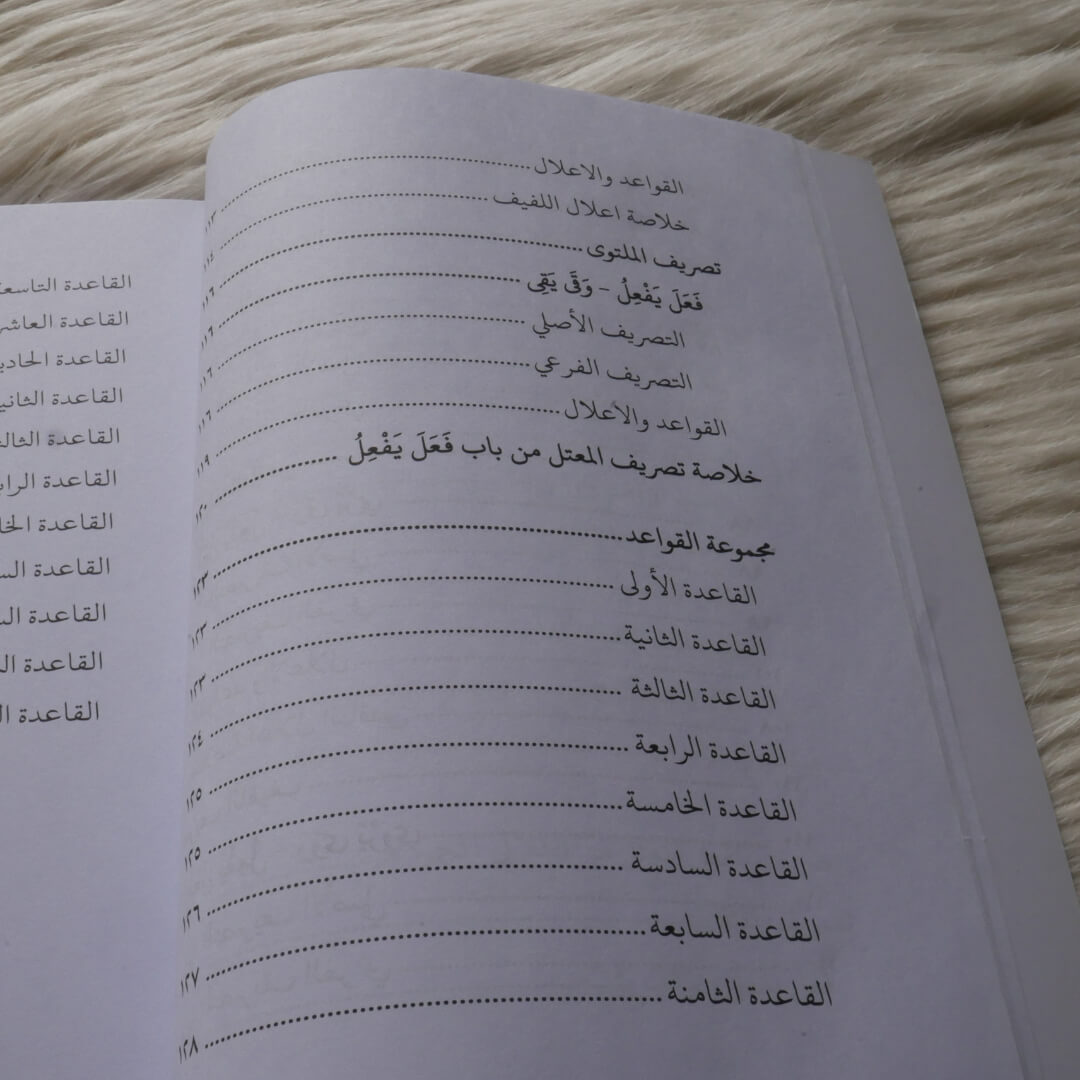 القواعد والاعلال
خلاصة اعلال اللفيف ١١٤
تصريف الملتوى ١١٦
فَعَلَ يَفْعِلُ - وَقَى يَقِى ١١٦
التصريف الأصلي ١١٦
التصريف الفرعي ١١٦
القواعد والاعلال ١١٩
خلاصة تصريف المعتل من باب فَعَلَ يَفْعِلُ ١٢٠
مجموعة القواعد ١٢٣
القاعدة الأولى ١٢٣
القاعدة الثانية ١٢٣
القاعدة الثالثة ١٢٤
القاعدة الرابعة ١٢٥
القاعدة الخامسة ١٢٥
القاعدة السادسة ١٢٦
القاعدة السابعة ١٢٧
القاعدة الثامنة ١٢٨
القاعدة التاسعة
القاعدة
القاعدة
القاعدة
القاعدة
القاعدة
القاعدة
القاعدة
القاعدة
القاعدة
القاعدة